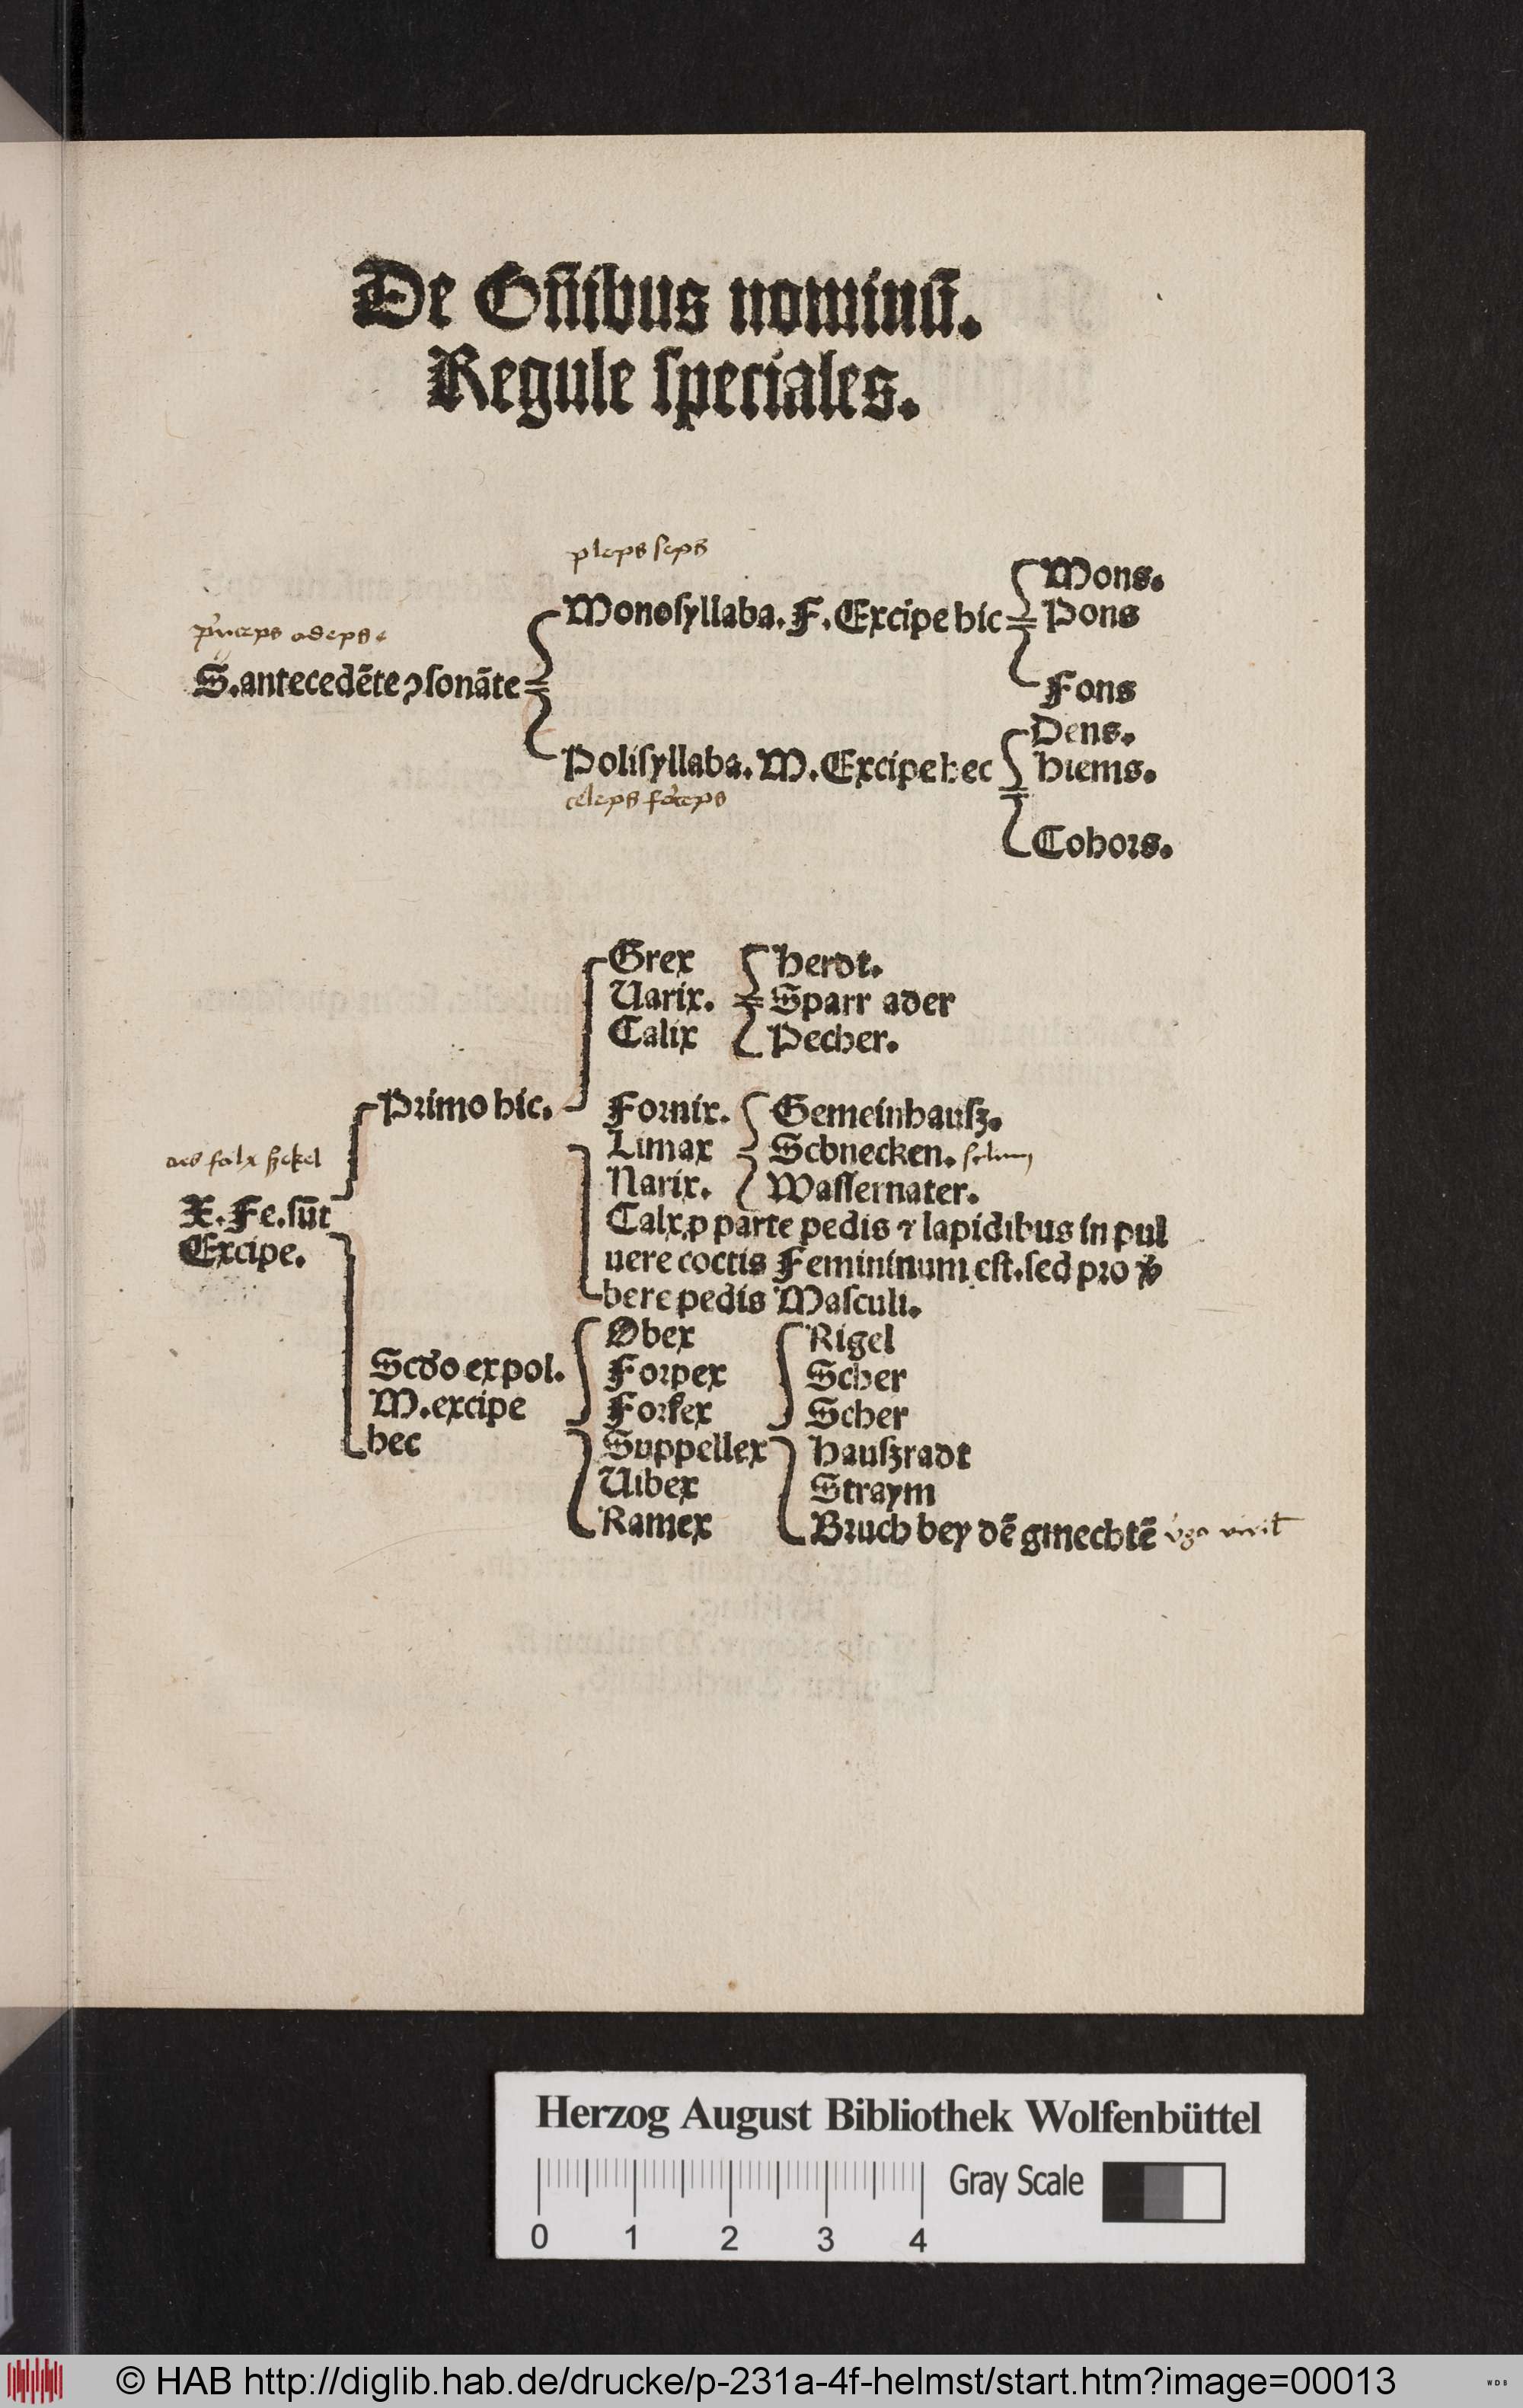 De Gn̄ibus nominū.
Regule speciales.
pleps seps
Monosyllaba. F. Excipe hic
Mons.
Pons
Fons
Dens.
p̄nceps adeps
S. antecedēte ↄsonāte
Polisyllaba. M. Excipe hec
celeps forceps
hiems.
Cohors.
Grex herdt.
Uarix. Sparr ader
Calix Pecher.
Primo hic.
Fornix. Gemeinhausz.
Limax Schnecken.
Narix. Wassernater.
Calx ꝓ parte pedis ⁊ lapidibus in pul
uere coctis Femininum est. sed pro
bere pedis Masculi.
falx
X. Fe. sūt
Excipe.
Scdo ex pol.
M. excipe
hec
Obex Rigel
Forpex Scher
Forfex Scher
Suppellex hauszradt
Uibex Straym
Ramex Bruch bey dē gmechtē
Herzog August Bibliothek Wolfenbüttel
Gray Scale
0 1 2 3 4
© HAB http://diglib.hab.de/drucke/p-231a-4f-helmst/start.htm?image=00013